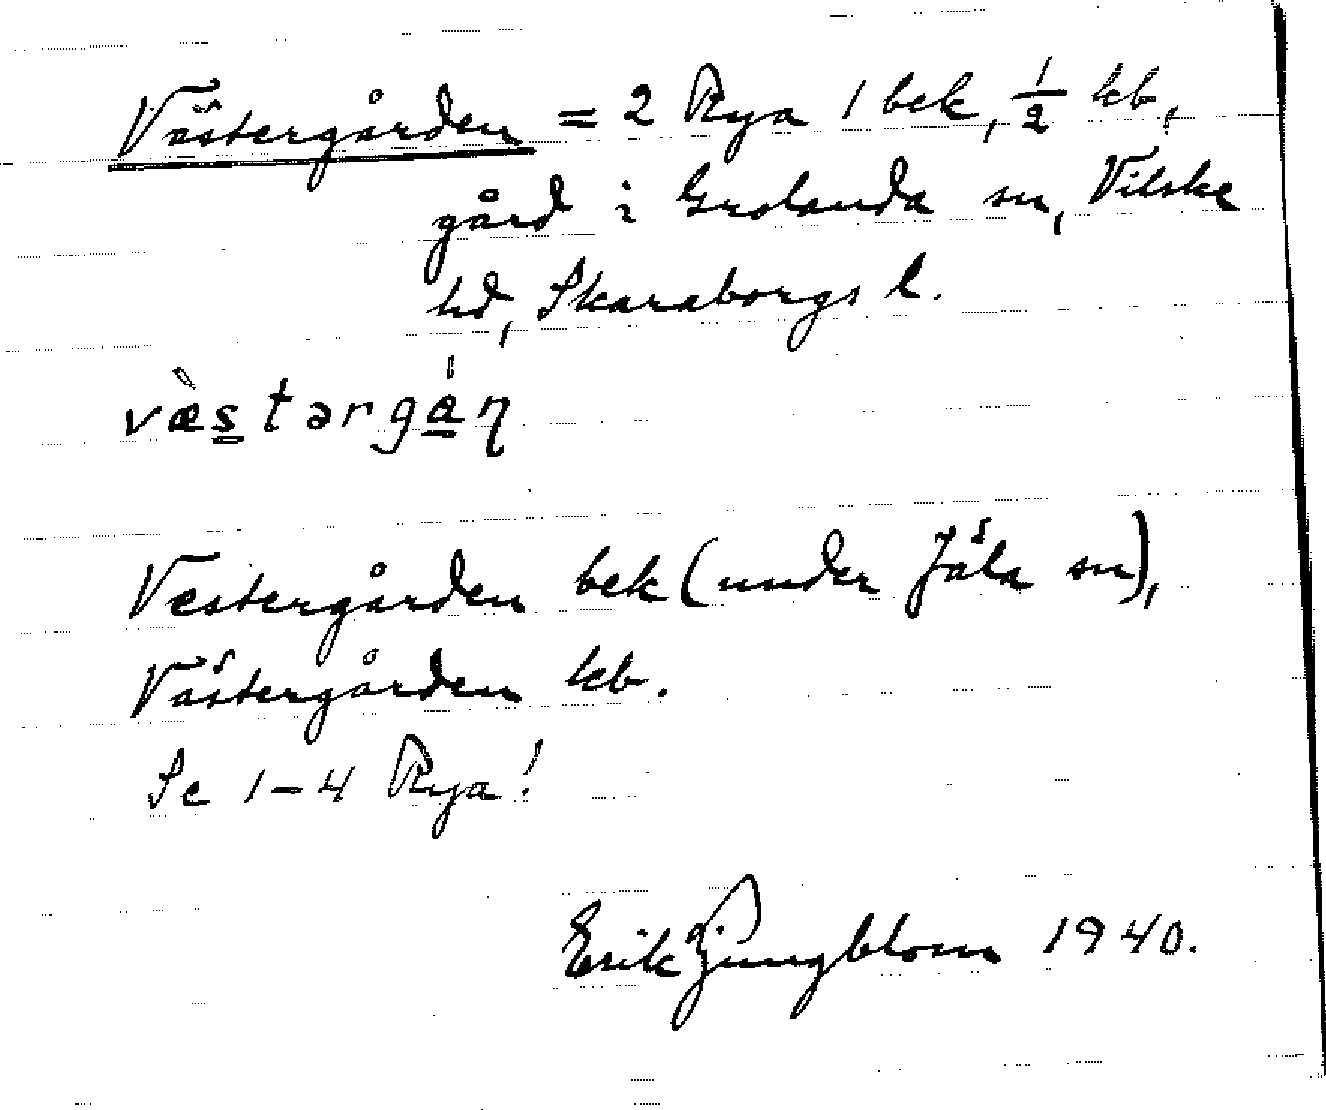 Västergården = 2 Rya 1 bek, ½ kb,
gård i Grolanda sn, Vilske
hd, Skaraborgs l.
væ̀stərgán
Vestergården bek (under Jäla sn),
Västergården kb.
Se 1-4 Rya!
Erik Ljungblom 1940.